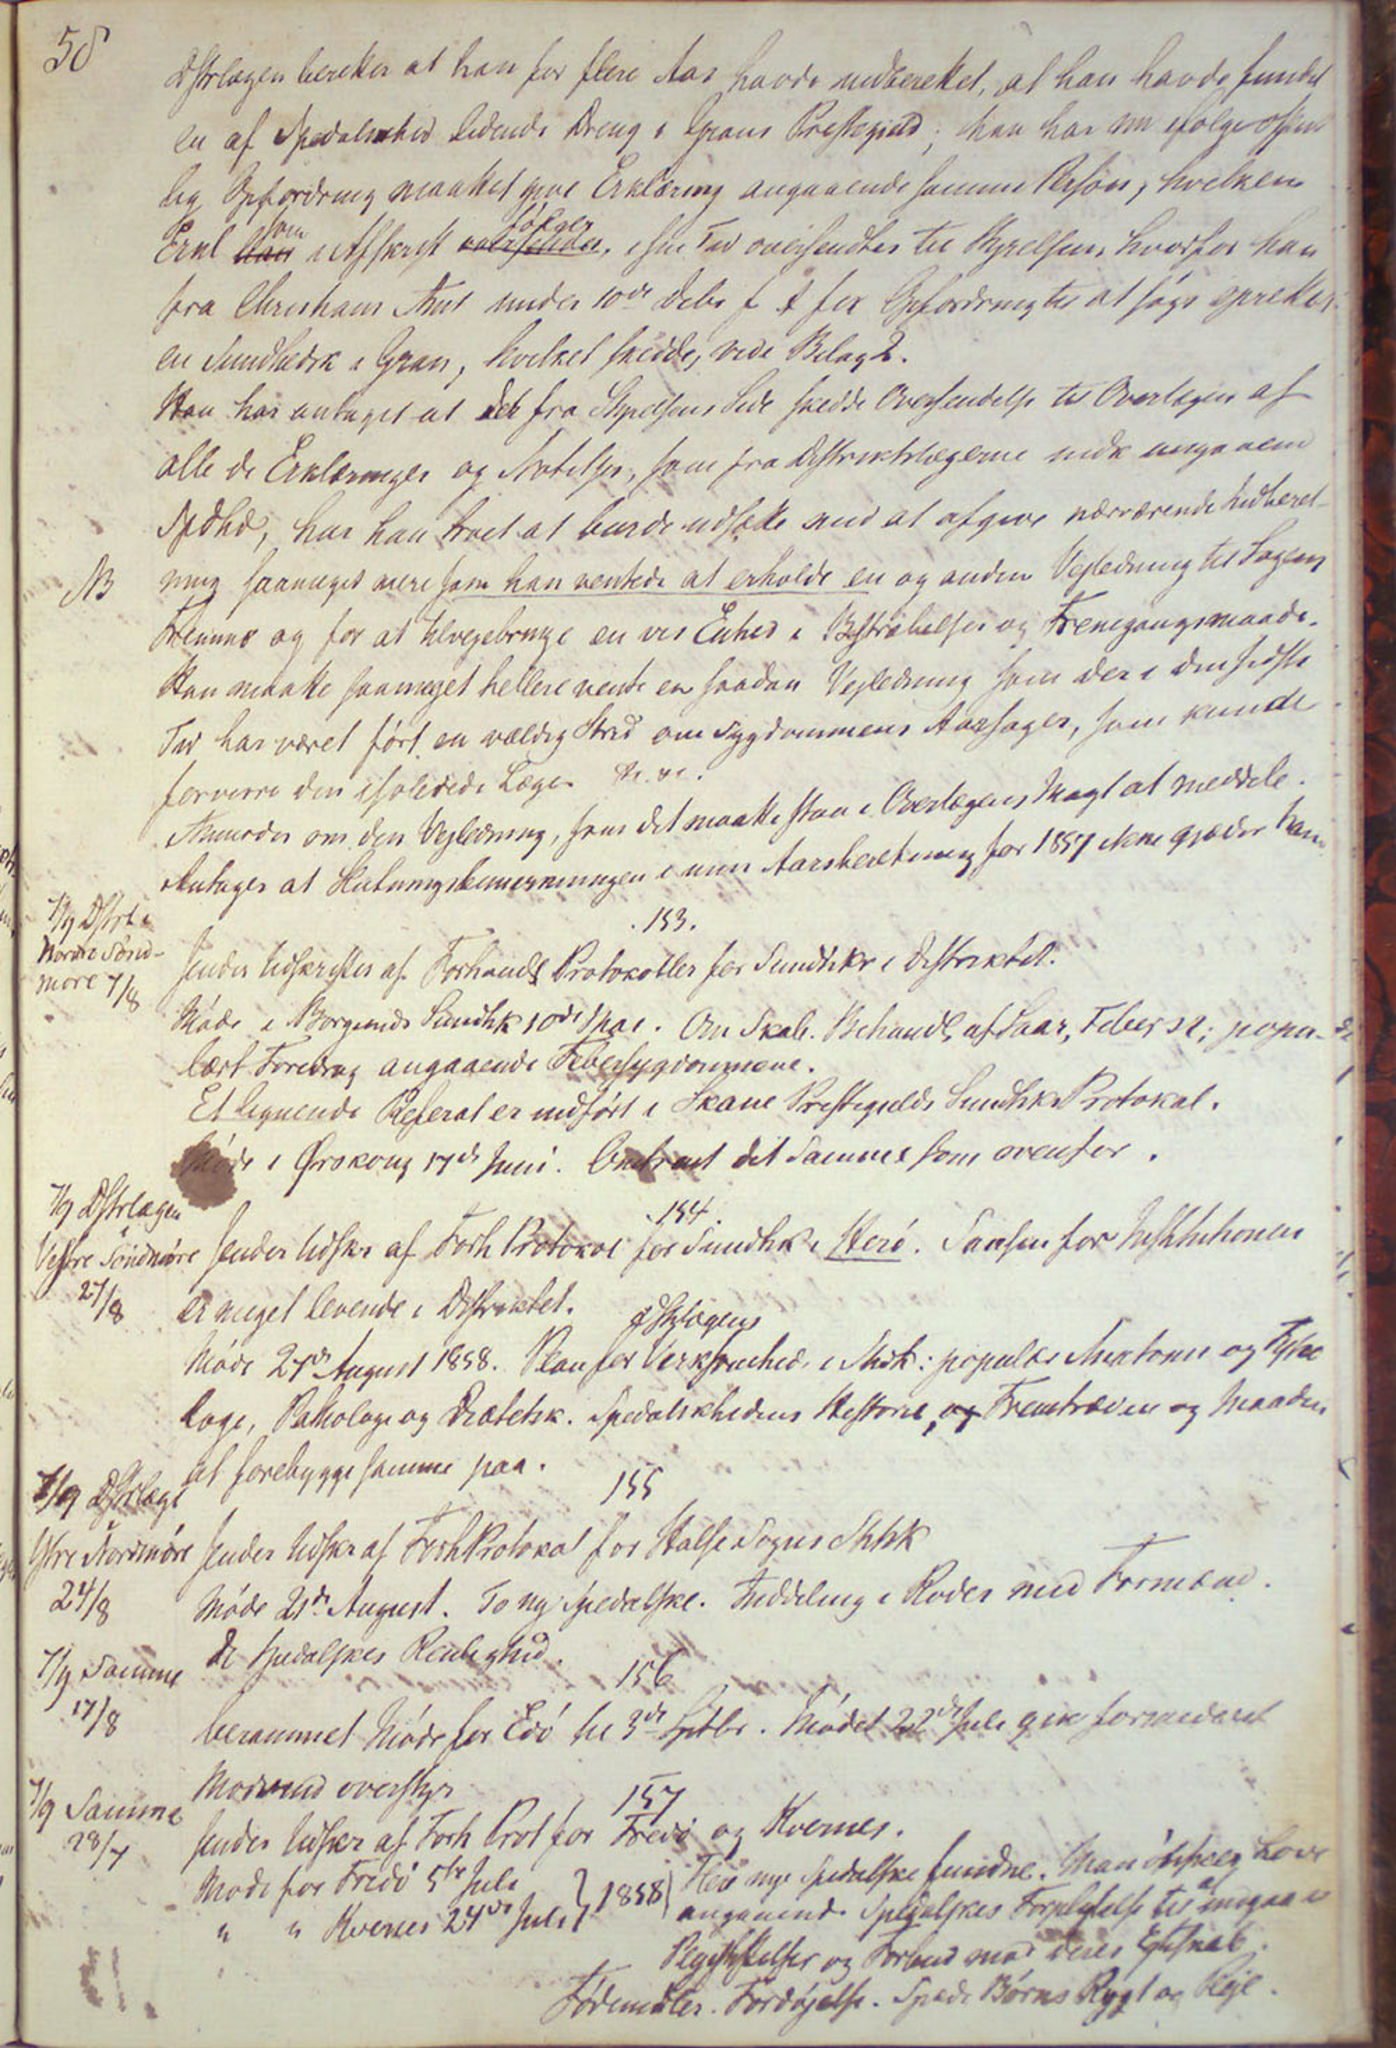 58
Dstrlægen beretter at han for flere Aar havde indberettet, at han havde fundet
en af Spedalskhed lidende Dreng i Grans Præstegjeld; han har nu ifølge
lig Opfordring maattet give Erklæring angaaende samme Person, hvilken
Erkl som i Afskrift følger, i sin Tid oversendtes til Styrelsen, hvorfor han
fra Christians Amt under 10de Debr f. A fik Opfordring til at søge oprettet
en Sundhedsk i Gran, hvilket skedde, vide Bilag 2.
Han har antaget at der fra Styrelsens Side skedde Oversendelse til Overlægen af
alle de Erklæringer og Notitser, som fra Distriktslægerne indk angaaende
Spdhd, har han troet at burde udsætte med at afgive nærværende Indberet-
NB
ning saameget mere som han ventede at erholde en og anden Vejledning til Sagens
Fremme og for at tilvejebringe en vis Enhed i Bestræbelser og Fremgangsmaade.
Han maatte saameget hellere vente en saadan Vejledning som der i den sidste
Tid har været ført en vældig Strid om Sygdommens Aarsager, som kunde
forvirre den isolerede Læge
Anmoder om den Vejledning, som det maatte staa i Overlægens Magt at meddele.
Antager at Slutningsbemærkningen i min Aarsberetning for 1857 ikke gjælder ham
153.
7/9 Dstrl i
Nordre Sønd-
møre 7/8
Sender Udskrifter af Forhandls Protokoller for Sundhkr i Distriktet.
Møde i Borgunds Sundhk 10de Mai. Om Skab. Behandl. af Saar, Feber; popu-
lært Foredrag angaaende Febersygdommene.
Et lignende Referat er indført i Skaue Præstegjelds Sundhks Protokol.
Møde i Ørskoug 17de Juni. Omtrent det Samme som ovenfor.
154.
7/9 Dstrlægen
i
Vestre Søndmøre
27/8
Sender Udskr af Forh Protokol for Sundhk i Herø. Sansen for Institutionen
er meget levende i Distriktet.
Møde 27de August 1858. Dstrlægens Plan for Verksomhed i Shdk: populær Anatomi og Fysio
logi, Pathologi og Diætetik. Spedalskhedens Historie, Fremtræden og Maaden
at forebygge samme paa.
155
7/9 Dstrlæge
i
Ytre Nordmøre
24/8
Sender Udskr af Forh Protokol for Halse Sogns Shdk
Møde 21de August. To ny Spedalske. Inddeling i Roder med Formænd.
De Spedalskes Renlighed.
156
7/9 Samme
17/8
berammet Møde for Edø til 3de Septbr. Mødet 22de Juli gik formedelst
Modvind overstyr
157
7/9 Samme
28/7
Sender Udskr af Forh Prot for Fredø og Kvernes.
Møde for Fredø 5te Juli
" " Kvernes 24de Juli } 1858
Flere nye Spedalske fundne. Man ønsker Love
angaaende Spedalskes Forpligtelse til at indgaa i
Plejestiftelser og Forbud mod deres Egteskab.
Fødemidler. Fordøjelse. Spæde Børns Røgt og Pleje.